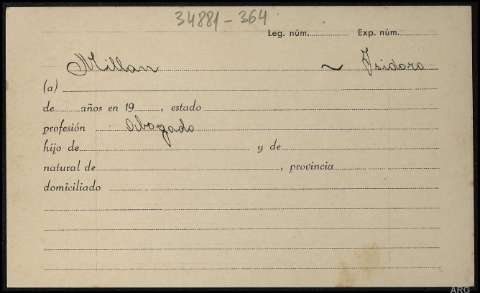 34881-364
Leg. núm. Exp. núm.
Millan ~ Isidoro
(a)
de años en 19 , estado
profesión Abogado
hijo de y de
natural de , provincia
domiciliado
ARG